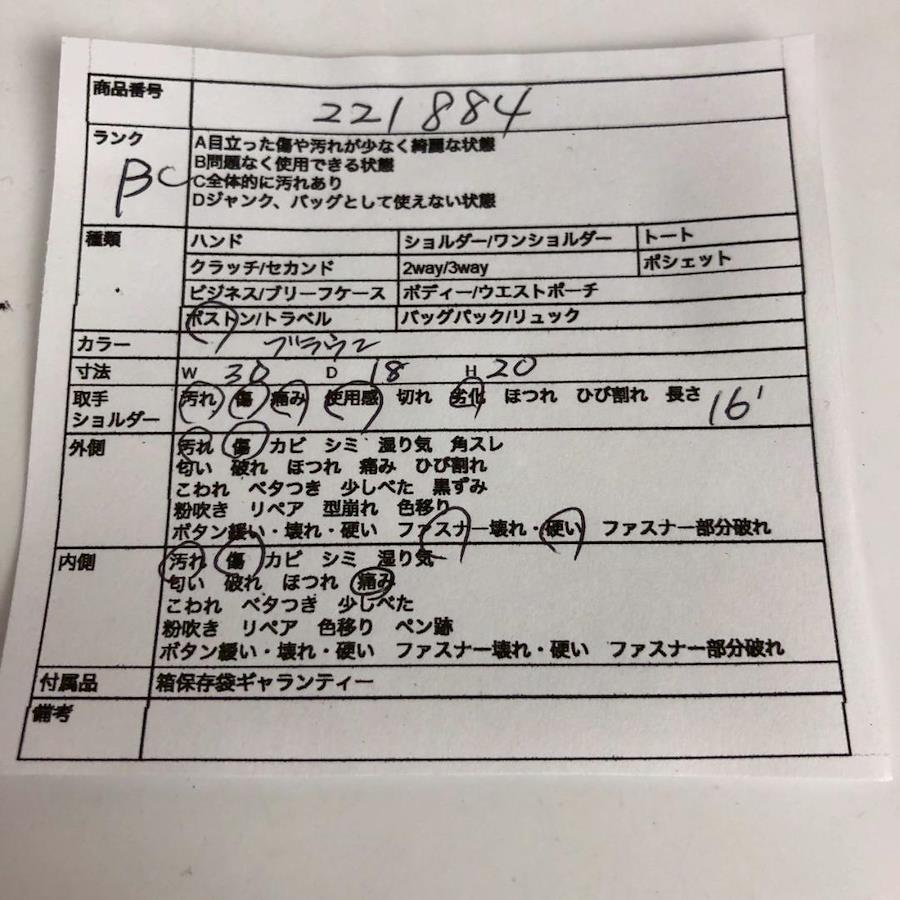 商品番号 221884
ランク BC
A目立った傷や汚れが少なく綺麗な状態
B問題なく使用できる状態
C全体的に汚れあり
Dジャンク、バッグとして使えない状態
種類 ハンド ショルダー/ワンショルダー トート
クラッチ/セカンド 2way/3way ポシェット
ビジネス/ブリーフケース ボディー/ウエストポーチ
ボストン/トラベル バッグパック/リュック
カラー ブラウン
寸法 W 30 D 18 H 20
取手 汚れ 傷 痛み 使用感 切れ 劣化 ほつれ ひび割れ 長さ 16
ショルダー
外側 汚れ 傷 カビ シミ 湿り気 角スレ
匂い 破れ ほつれ 痛み ひび割れ
こわれ ベタつき 少しべた 黒ずみ
粉吹き リペア 型崩れ 色移り
ボタン緩い・壊れ・硬い ファスナー壊れ・硬い ファスナー部分破れ
内側 汚れ 傷 カビ シミ 湿り気
匂い 破れ ほつれ 痛み
こわれ ベタつき 少しべた
粉吹き リペア 色移り ペン跡
ボタン緩い・壊れ・硬い ファスナー壊れ・硬い ファスナー部分破れ
付属品 箱保存袋ギャランティー
備考